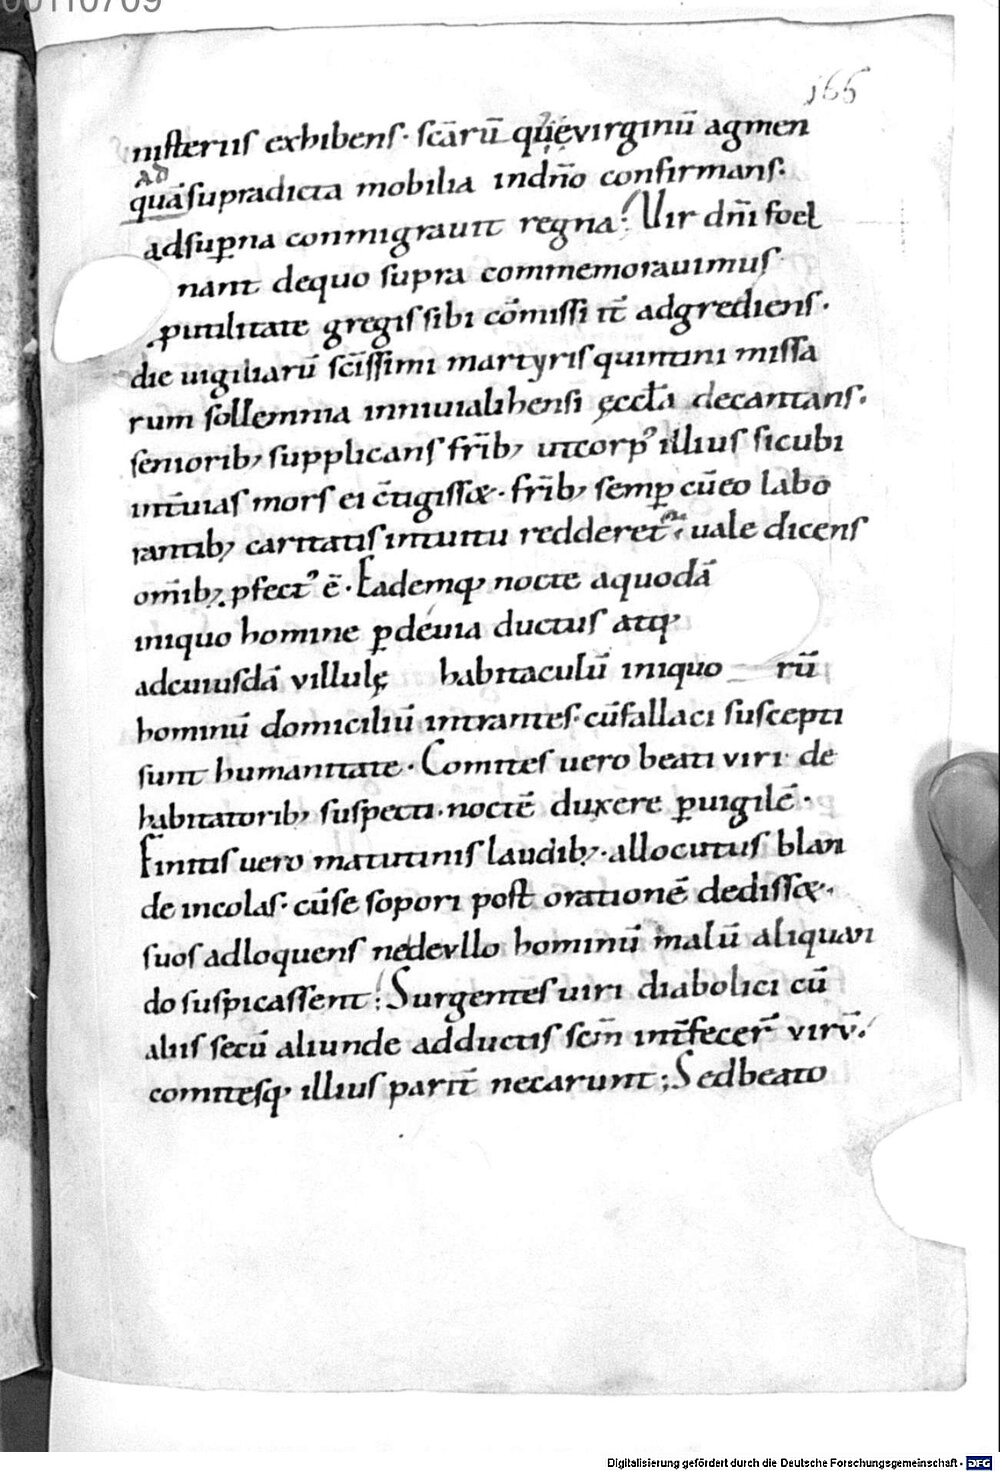 00110709
166
nisteriis exhibens· scārū quęvirginū agmen
AD
quā supradicta mobilia indn̄o confirmans·
adsup̱na conmigrauit regna; Uir dn̄i foel
nant dequo supra commemorauimus·
putilitate gregis sibi cōmissi it̄ adgrediens·
die uigiliarū sc̄issimi martyris quintini missa
rum sollemnia inniuialihensi ęccl̄a decantans·
seniorib; supplicans fr̄ib; utcorpꝰ illius sicubi
int̄uias mors ei c̄tigissæ· fr̄ib; semp̱ cūeo labo
rantib; caritatis intuitu redderet uale dicens
om̄ib; pfectꝰ ē· Eademq; nocte aquodā
iniquo homine p̱deuia ductus atq;
adcuiusdā villulę habitaculū iniquo rū
hominū domiciliū intrantes· cūfallaci suscepti
sunt humanitate· Comites uero beati viri de
habitatorib; suspecti· noctē duxere p̱uigilē·
Finitis uero matutinis laudib;· allocutus blan
de incolas· cūse sopori post orationē dedissæ·
suos adloquens nedevllo hominū malū aliquan
do suspicassent; Surgentes uiri diabolici cū
aliis secū aliunde adductis sem̄ int̄fecer̄ virv̄·
comitesq; illius parit̄ necarunt; Sedbeato
Digitalisierung gefördert durch die Deutsche Forschungsgemeinschaft - DFG